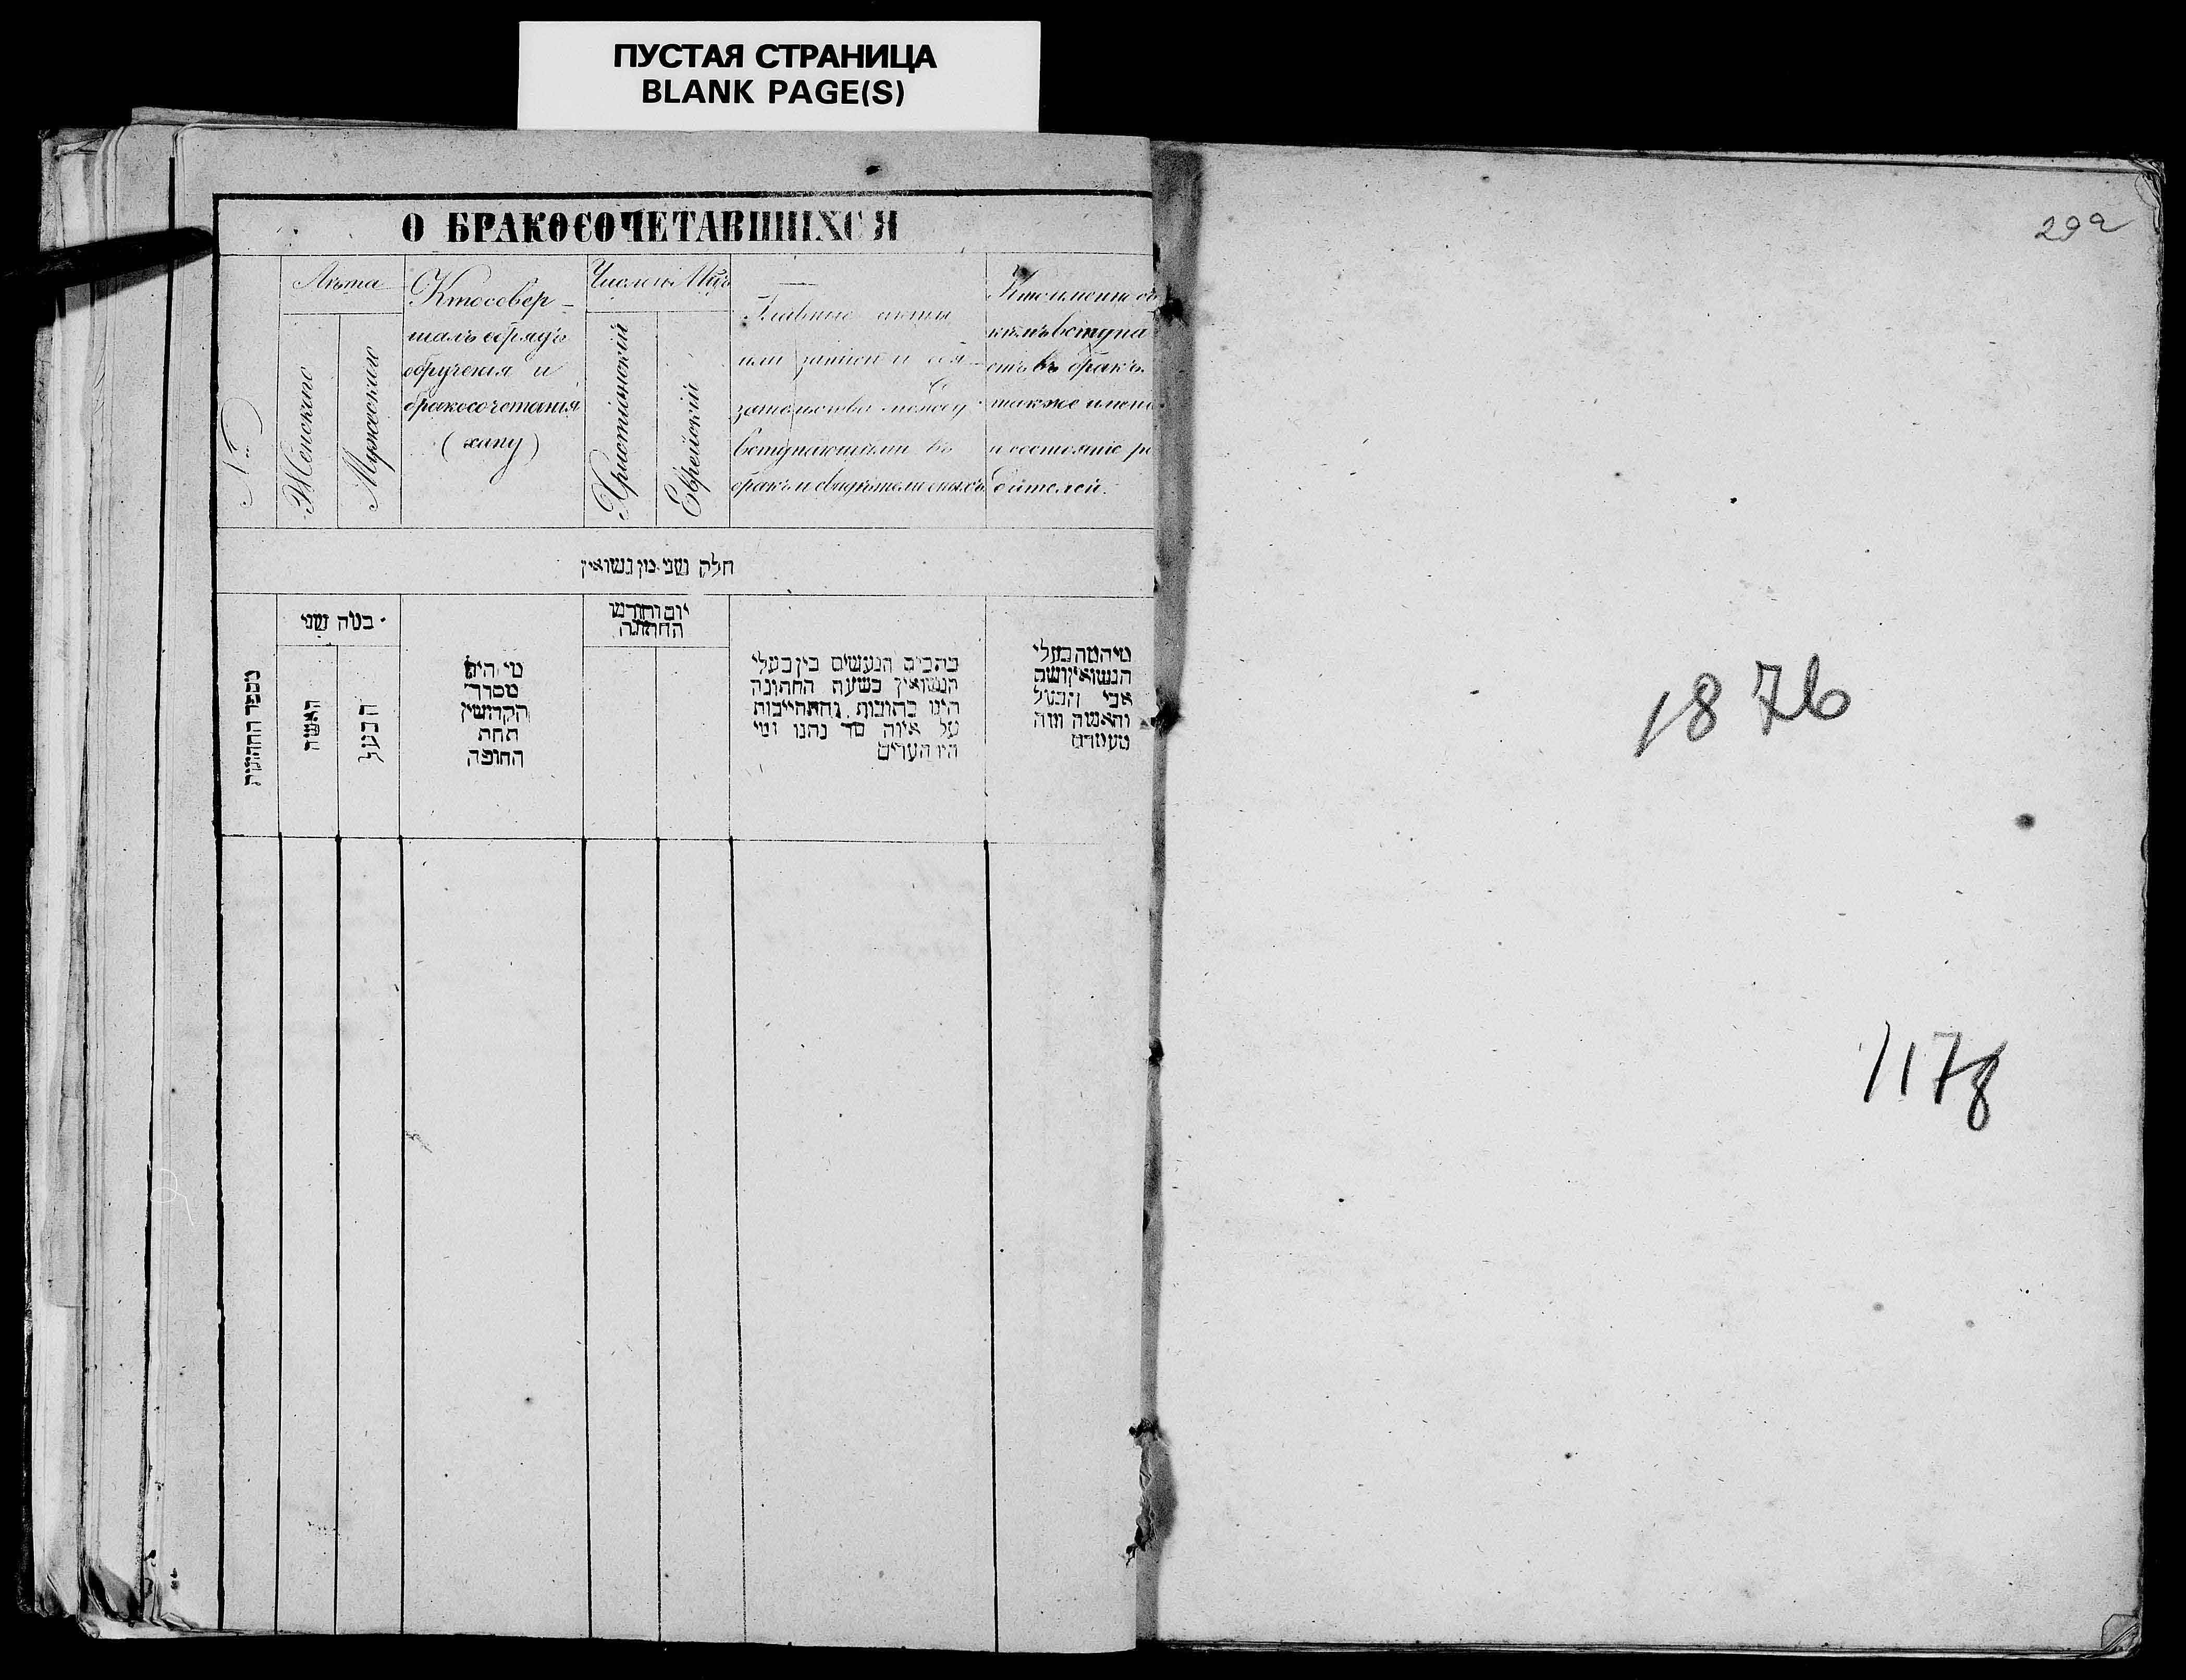 ПУСТАЯ СТРАНИЦА
BLANK PAGE(S)
О БРАКОСОЧЕТАВШИХСЯ
№
Лѣта
Женскаго
Мужскаго
Кто совер-
шалъ обрядъ
обрученія и
бракосочетанія
(хупу)
Число и Мѣц
Христіанскій
Еврейскій
Главные акты
или записи и обя-
зательства между
вступающими въ
бракъ и свидѣтели оныхъ
Кто именно съ
кѣмъ вступа
етъ въ бракъ
также имена
и состояніе ро
дителей.
חלק שני מן נשואין
מספר החתונות
בטה שני
האשה
הבעל
מי היה
מסדר
הקדושין
תחת
החופה
יום וחודש
החתונה
כתבים הנעשים בין בעלי
הנשואין בשעת החתונה
היינו כתובות והתחייבות
על איזה סך נתנו ומי
היו העדים
מי המה בעלי
הנשואין ושם
אבי הבעל
והאשה ומה
מעמדם
292
1876
1178